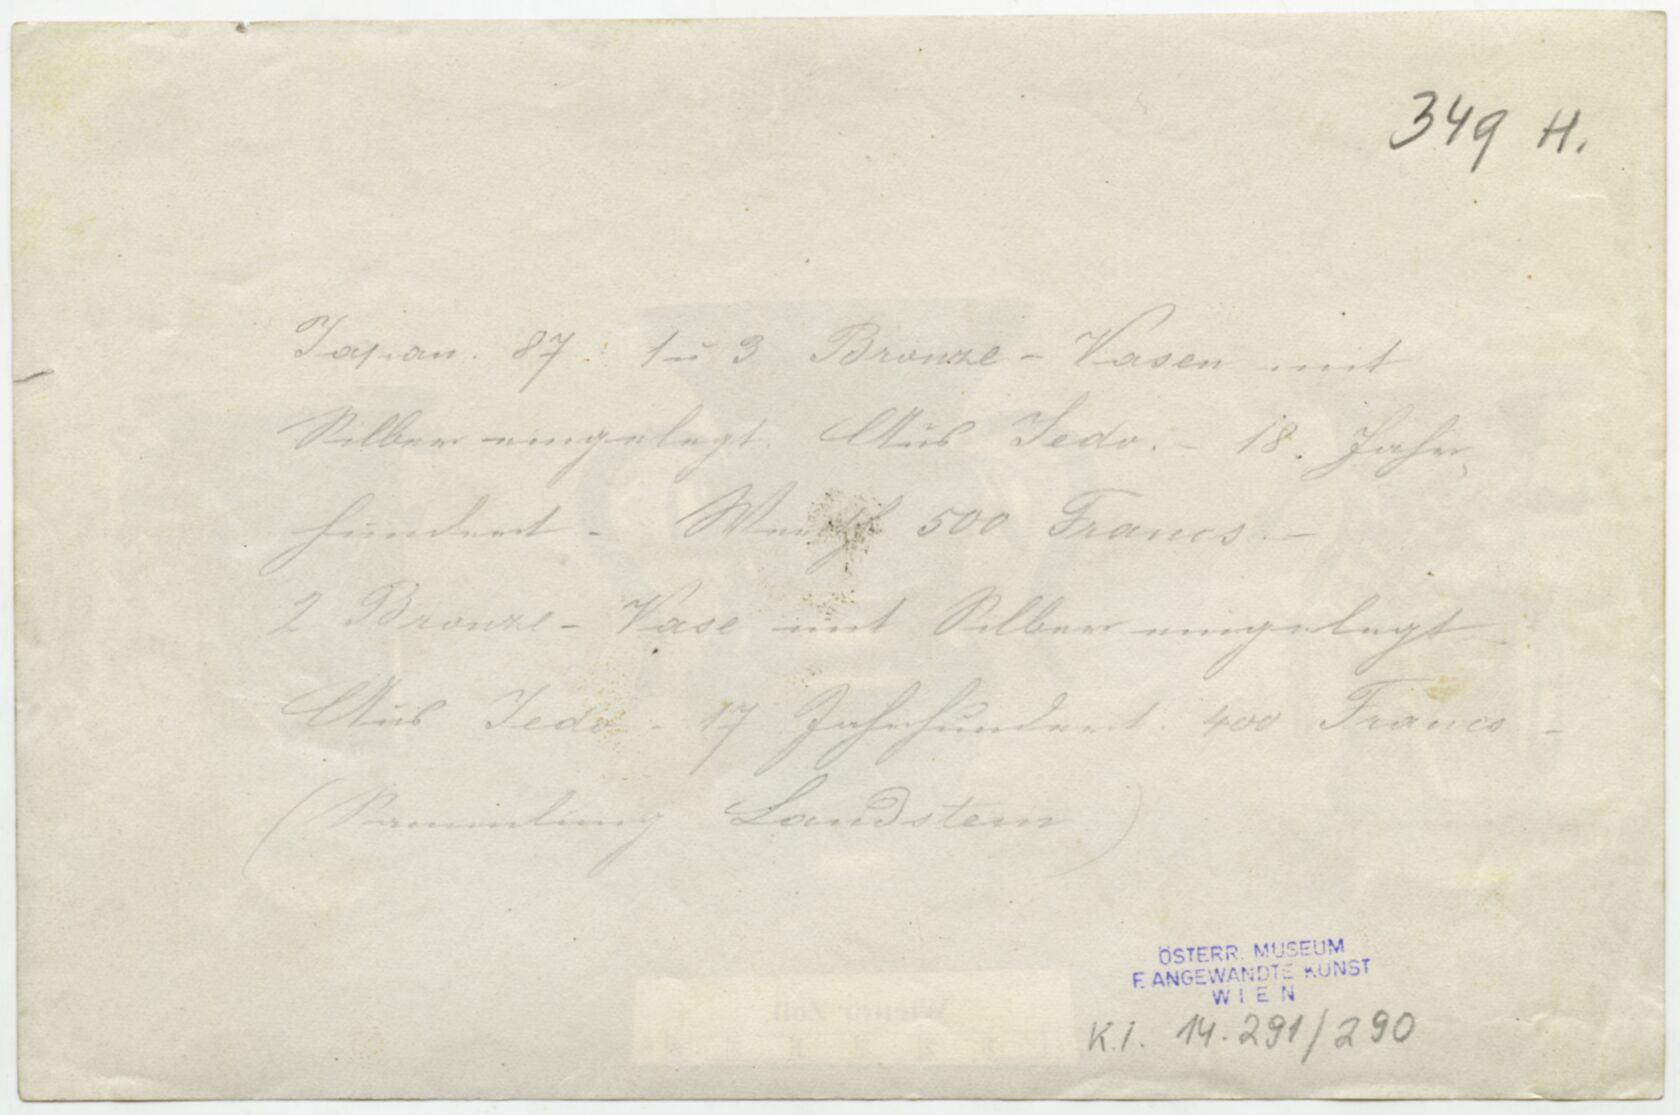 349 H.
Japan. 87. 1 u 3 Bronze - Vasen mit
Silber eingelegt. Aus Jedo. - 18. Jahr-
hundert - Werth 500 Francs. -
2 Bronze - Vase mit Silber eingelegt
Aus Jedo - 17 Jahrhundert. 400 Francs -
(Sammlung Landstein)
ÖSTERR. MUSEUM
F. ANGEWANDTE KUNST
WIEN
K.I. 14.291/290
Wiener Zoll